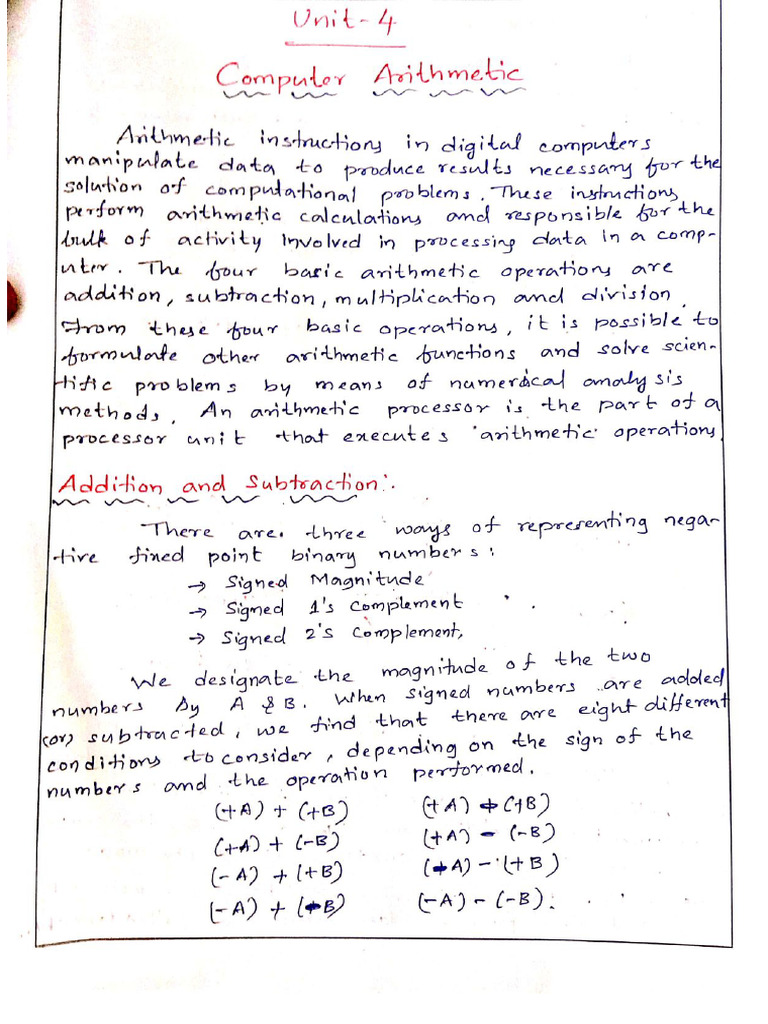 Unit-4
Computer Arithmetic
Arithmetic instructions in digital computers
manipulate data to produce results necessary for the
solution of computational problems. These instructions
perform arithmetic calculations and responsible for the
bulk of activity involved in processing data in a comp-
uter. The four basic arithmetic operations are
addition, subtraction, multiplication and division.
From these four basic operations, it is possible to
formulate other arithmetic functions and solve scien-
tific problems by means of numerical analysis
methods. An arithmetic processor is the part of a
processor unit that executes arithmetic operations
Addition and Subtraction:.
There are three ways of representing nega-
tive fixed point binary numbers:
→ Signed Magnitude
→ Signed 1's complement
→ Signed 2's complement,
We designate the magnitude of the two
numbers by A & B. When signed numbers are added
(or) subtracted, we find that there are eight different
conditions to consider, depending on the sign of the
numbers and the operation performed.
(+A) + (+B) (+A) - (+B)
(+A) + (-B) (+A) - (-B)
(-A) + (+B) (-A) - (+B)
(-A) + (-B) (-A) - (-B).